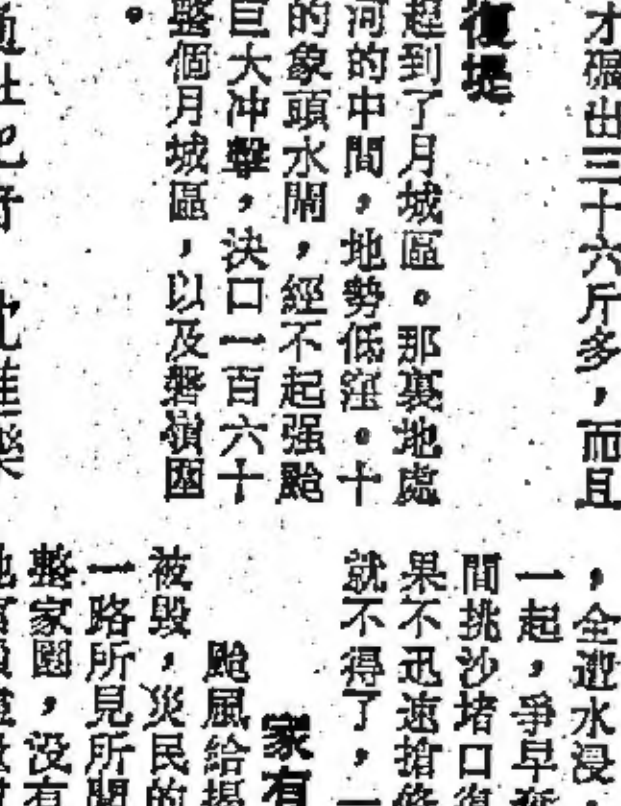 才碾出三十六斤多，而且
復堤
起到了月城區。那裏地處
河的中間，地勢低窪。十
的象頭水閘，經不起强颱
巨大冲擊，決口一百六十
整個月城區，以及磐嶺圍
。
，全遭水浸
一起，爭早
間挑沙堵口復
果不迅速搶修
就不得了，一
家有
颱風給揭
被毀，災民的
一路所見所聞
整家園，没有